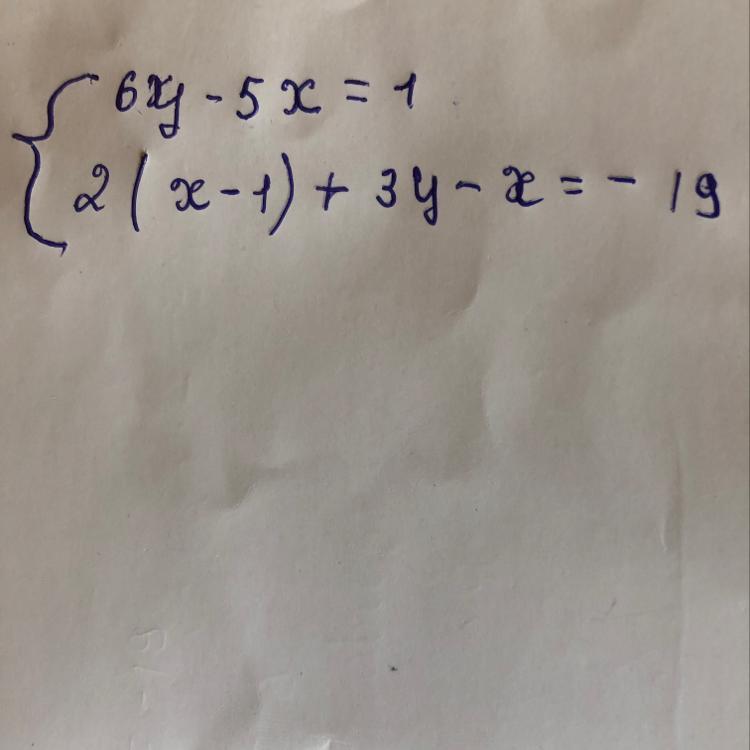 6xy - 5x = 1
2(x - 1) + 3y - x = - 19